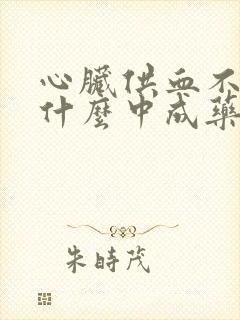 心臟供血不
什麼中成藥
朱時茂